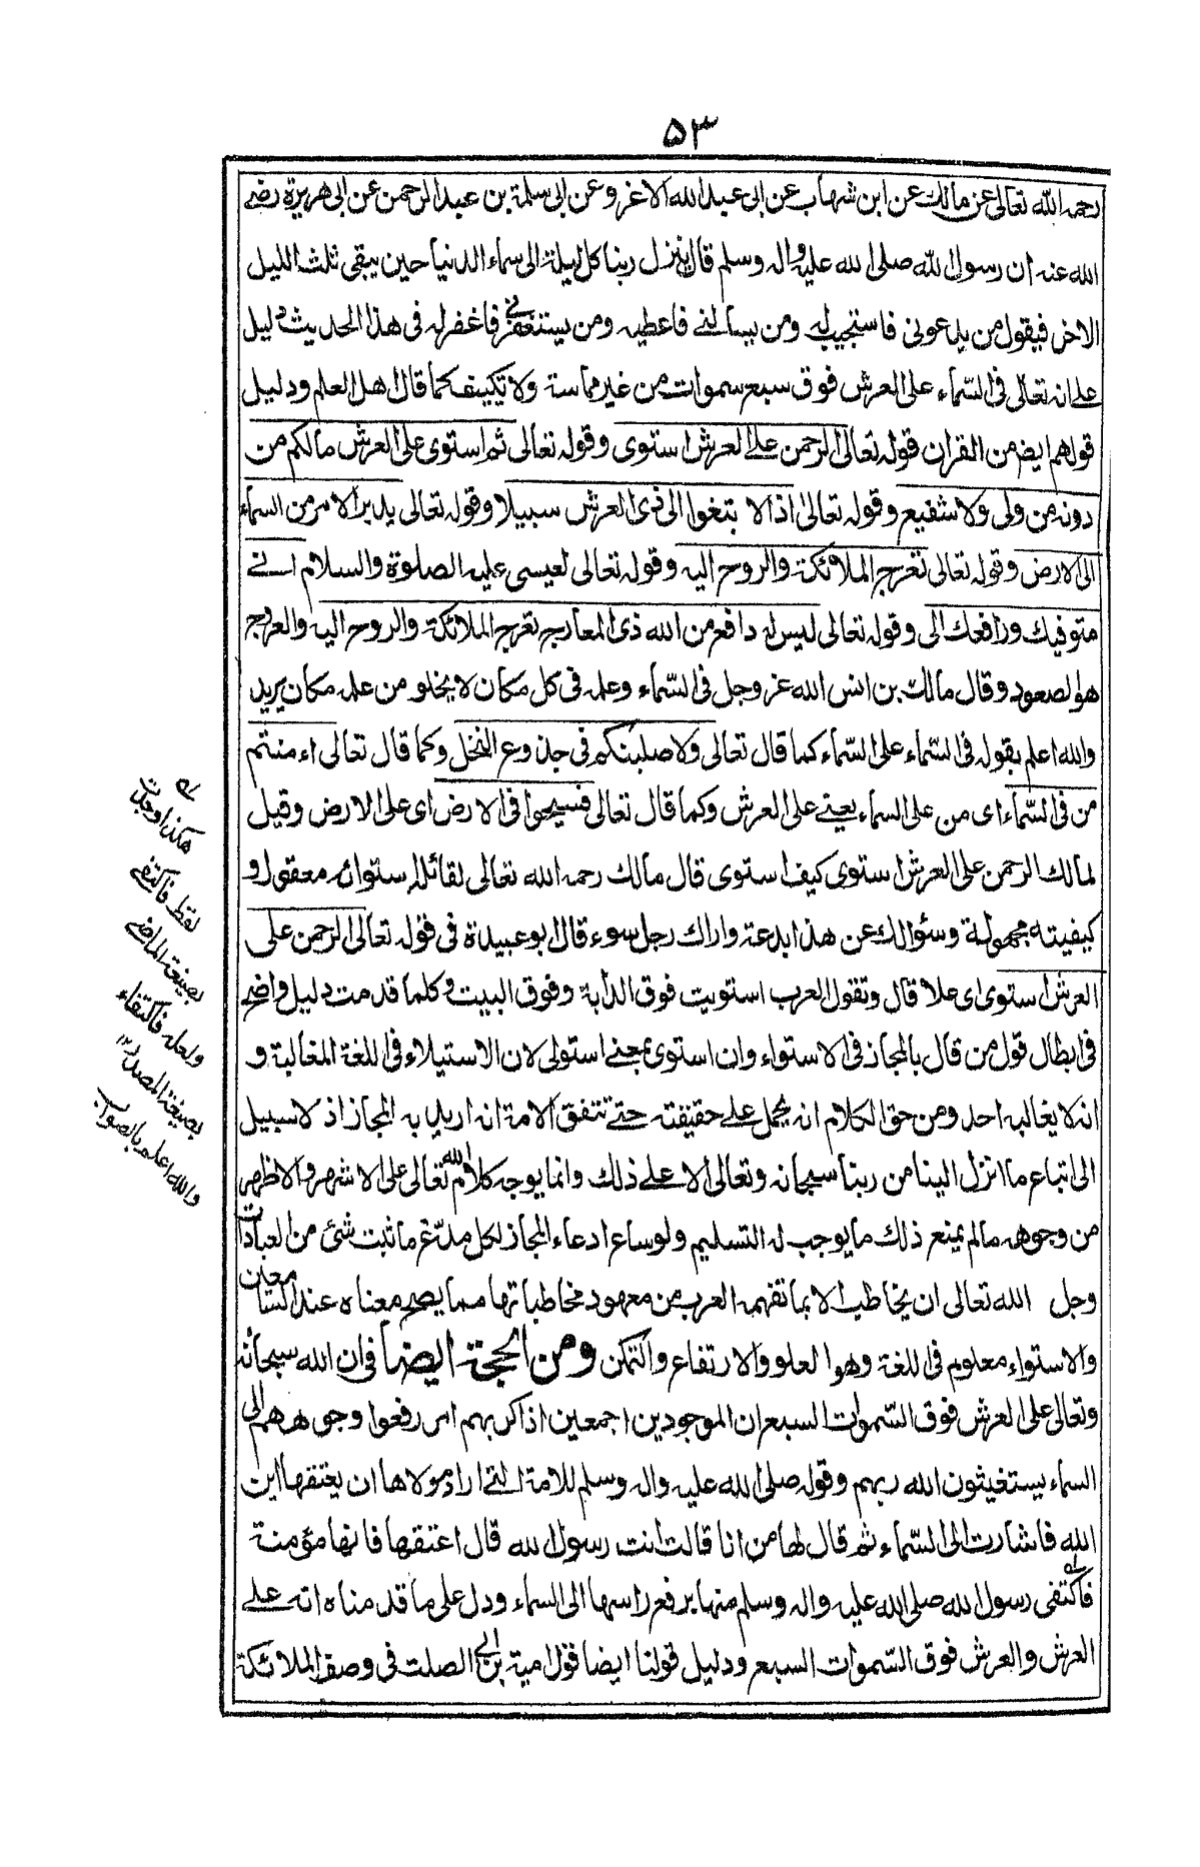 ۵۳
رحمه الله تعالى عن مالك عن ابن شهاب عن ابى عبد الله الاغر وعن ابى سلمة بن عبد الرحمن عن ابى هريرة رضى
الله عنه ان رسول الله صلى الله عليه واله وسلم قال ينزل ربنا كل ليلة الى سماء الدنيا حين يبقى ثلث الليل
الاخر فيقول من يدعونى فاستجيب له ومن يسألنى فاعطيه ومن يستغفرنى فاغفر له فى هذا الحديث دليل
على انه تعالى فى السماء على العرش فوق سبع سموات من غير مماسة ولا تكييف كما قال اهل العلم ودليل
قولهم ايضا من القران قوله تعالى الرحمن على العرش استوى وقوله تعالى ثم استوى على العرش مالكم من
دونه من ولى ولا شفيع وقوله تعالى اذا لا بتغوا الى ذى العرش سبيلا وقوله تعالى يدبر الامر من السماء
الى الارض وقوله تعالى تعرج الملائكة والروح اليه وقوله تعالى لعيسى عليه الصلوة والسلام انى
متوفيك ورافعك الى وقوله تعالى ليس له دافع من الله ذى المعارج تعرج الملائكة والروح اليه والعروج
هو الصعود وقال مالك بن انس الله عز وجل فى السماء وعلمه فى كل مكان لا يخلو من علمه مكان يريد
والله اعلم بقوله فى السماء على السماء كما قال تعالى ولاصلبنكم فى جذوع النخل وكما قال تعالى ءامنتم
من فى السماء اى من على السماء يعنى على العرش وكما قال تعالى فسيحوا فى الارض اى على الارض وقيل
لمالك الرحمن على العرش استوى كيف استوى قال مالك رحمه الله تعالى لقائله استوائه معقول و
كيفيته مجهولة وسؤالك عن هذا بدعة واراك رجل سوء قال ابو عبيدة فى قوله تعالى الرحمن على
العرش استوى اى علا قال وتقول العرب استويت فوق الدابة وفوق البيت وكلما قدمت دليل واضح
فى ابطال قول من قال بالمجاز فى الاستواء وان استوى بمعنى استولى لان الاستيلاء فى اللغة المغالبة و
انه لا يغالبه احد ومن حق الكلام انه يحمل على حقيقته حتى تتفق الامة انه اريد به المجاز اذ لا سبيل
الى اتباع ما انزل الينا من ربنا سبحانه وتعالى الا على ذلك وانما يوجه كلام الله تعالى على الاشهر والاظهر
من وجوهه مالم يمنع ذلك ما يوجب له التسليم ولو ساغ ادعاء المجاز لكل مدّع ما ثبت شئ من العبادات
وجل الله تعالى ان يخاطب الا بما تفهمه العرب من معهود مخاطباتها مما يصح معناه عند السامعين
والاستواء معلوم فى اللغة وهو العلو والارتفاع والتمكن ومن الحجة ايضا فى ان الله سبحانه
وتعالى على العرش فوق السموات السبع ان الموجودين اجمعين اذا كربهم امر رفعوا وجوههم الى
السماء يستغيثون الله ربهم وقوله صلى الله عليه واله وسلم للامة التى اراد مولاها ان يعتقها اين
الله فاشارت الى السماء ثم قال لها من انا قالت انت رسول الله قال اعتقها فانها مؤمنة
فاكتفى رسول الله صلى الله عليه واله وسلم منها برفع راسها الى السماء ودل على ما قدمناه انه على
العرش والعرش فوق السموات السبع ودليل قولنا ايضا قول امية بن ابى الصلت فى وصف الملائكة
هكذا وجدت
لفظ فاكتفى
بصيغة الماضى
ولعله فاكتفاء
بصيغة المصدر ۱۲
والله اعلم بالصواب